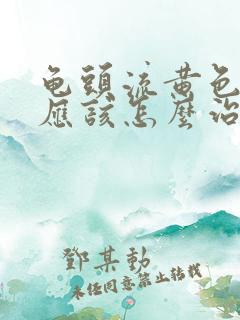 龟頭流黄色
應該怎麼治
鄧某勤
未经同意禁止转载